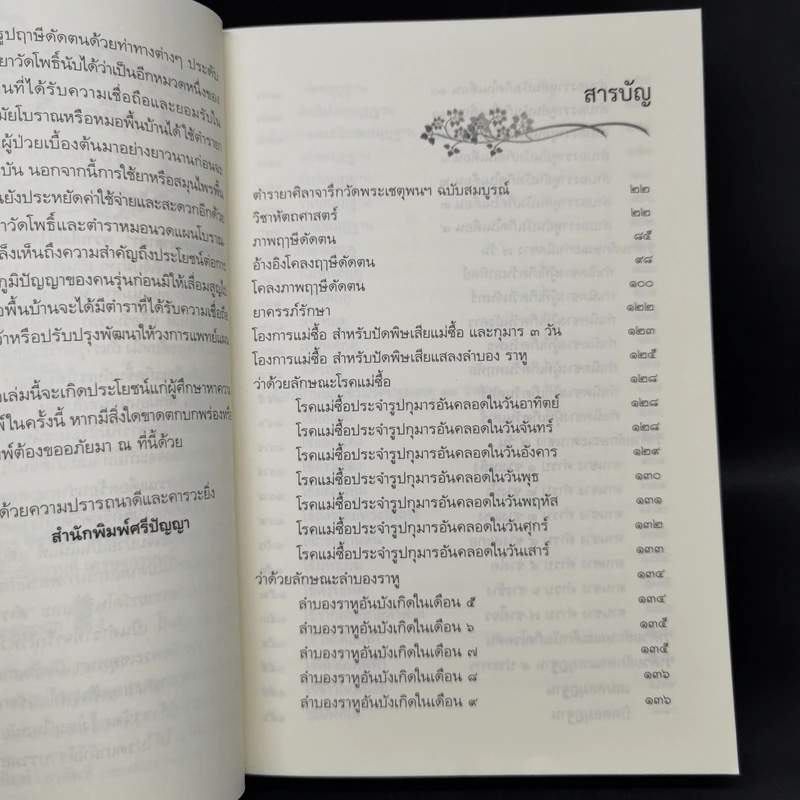 รูปฤาษีดัดตนด้วยท่าทางต่างๆ ประดับ
ยาวัดโพธิ์นับได้ว่าเป็นอีกหมวดหนึ่งของ
นที่ได้รับความเชื่อถือและยอมรับใน
มัยโบราณหรือหมอพื้นบ้านได้ใช้ตำรายา
ผู้ป่วยเบื้องต้นมาอย่างยาวนานก่อนจะ
บัน นอกจากนี้การใช้ยาหรือสมุนไพรพื้น
นยังประหยัดค่าใช้จ่ายและสะดวกอีกด้วย
าวัดโพธิ์และตำราหมอนวดแผนโบราณ
ล็งเห็นถึงความสำคัญถึงประโยชน์ต่อการ
ภูมิปัญญาของคนรุ่นก่อนมิให้เสื่อมสูญไป
อพื้นบ้านจะได้มีตำราที่ได้รับความเชื่อถือ
ว้าหรือปรับปรุงพัฒนาให้วงการแพทย์แผน
อเล่มนี้จะเกิดประโยชน์แก่ผู้ศึกษาหาความ
พ์ในครั้งนี้ หากมีสิ่งใดขาดตกบกพร่องหรือ
พ์ต้องขออภัยมา ณ ที่นี้ด้วย
ด้วยความปรารถนาดีและคารวะยิ่ง
สำนักพิมพ์ศรีปัญญา
สารบัญ
ตำรายาศิลาจารึกวัดพระเชตุพนฯ ฉบับสมบูรณ์ ๒๒
วิชาหัตถศาสตร์ ๒๒
ภาพฤๅษีดัดตน ๘๕
อ้างอิงโคลงฤๅษีดัดตน ๙๘
โคลงภาพฤๅษีดัดตน ๑๐๐
ยาครรภ์รักษา ๑๒๒
โองการแม่ซื้อ สำหรับปัดพิษเสียแม่ซื้อ และกุมาร ๓ วัน ๑๒๓
โองการแม่ซื้อ สำหรับปัดพิษเสียแสลงลำบอง ราหู ๑๒๕
ว่าด้วยลักษณะโรคแม่ซื้อ ๑๒๘
โรคแม่ซื้อประจำรูปกุมารอันคลอดในวันอาทิตย์ ๑๒๘
โรคแม่ซื้อประจำรูปกุมารอันคลอดในวันจันทร์ ๑๒๘
โรคแม่ซื้อประจำรูปกุมารอันคลอดในวันอังคาร ๑๒๙
โรคแม่ซื้อประจำรูปกุมารอันคลอดในวันพุธ ๑๓๐
โรคแม่ซื้อประจำรูปกุมารอันคลอดในวันพฤหัส ๑๓๑
โรคแม่ซื้อประจำรูปกุมารอันคลอดในวันศุกร์ ๑๓๒
โรคแม่ซื้อประจำรูปกุมารอันคลอดในวันเสาร์ ๑๓๓
ว่าด้วยลักษณะลำบองราหู ๑๓๔
ลำบองราหูอันบังเกิดในเดือน ๕ ๑๓๔
ลำบองราหูอันบังเกิดในเดือน ๖ ๑๓๕
ลำบองราหูอันบังเกิดในเดือน ๗ ๑๓๕
ลำบองราหูอันบังเกิดในเดือน ๘ ๑๓๖
ลำบองราหูอันบังเกิดในเดือน ๙ ๑๓๖